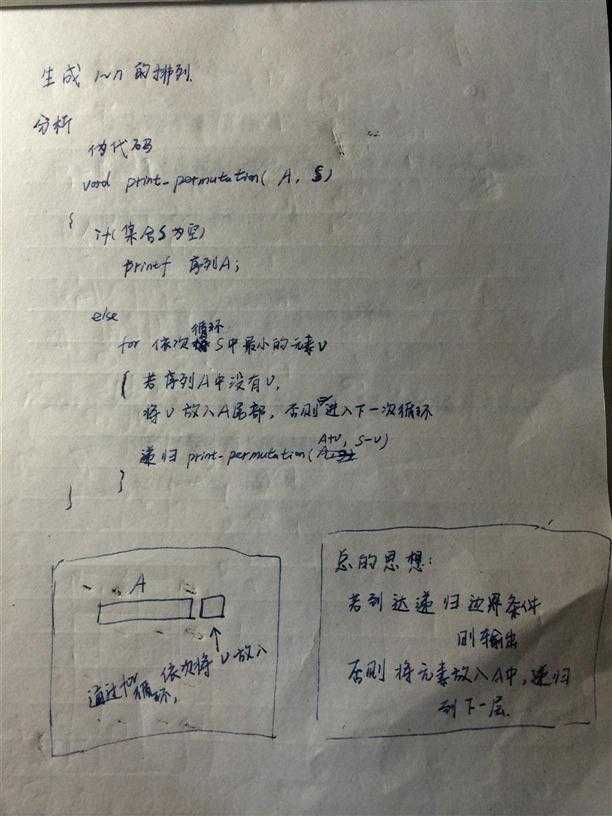 生成 1~n 的排列.
分析
伪代码
void print_permutation( A, S)
{
if(集合S为空)
printf 序列A;
else
for 依次循环S中最小的元素v
{ 若序列A中没有v,
将v放入A尾部, 否则进入下一次循环
递归 print_permutation(A+v, S-v)
}
}
A
依次将v放入
通过for循环,
总的思想:
若到达递归边界条件
则输出
否则将元素放入A中, 递归
到下一层.